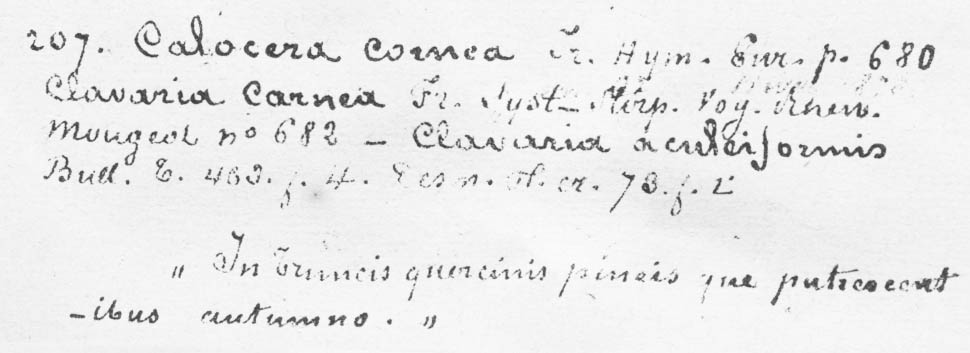 207. Calocera cornea Fr. Hym. Eur. p. 680
Clavaria Carnea Fr. Syst_ Stirp. Vog. Rhen.
Mougeot nº 682 _ Clavaria aculeiformis
Bull. T. 463. f. 4. cr. 73. f. 2
„ In truncis quercinis pineis que putrescent
-ibus autumno. „